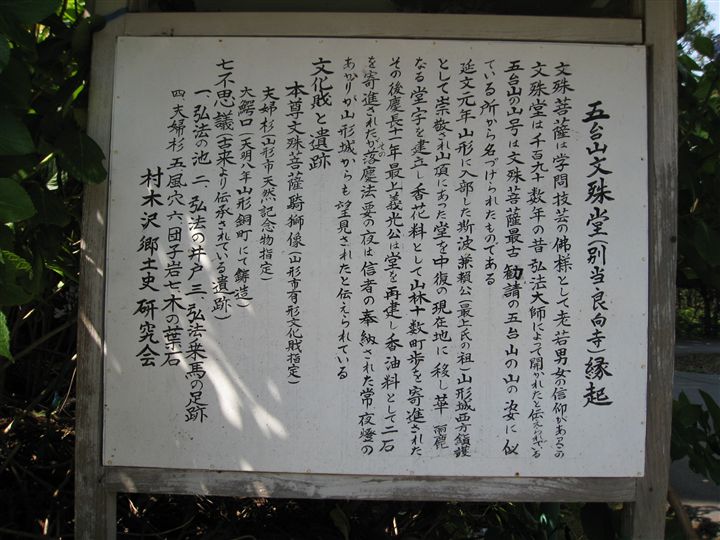 五台山文殊堂(別当良向寺)縁起
文殊菩薩は学問技芸の佛様として老若男女の信仰があるこの
文殊堂は千百十数年の昔弘法大師によって開かれたと伝えられてる
五台山の山号は文殊菩薩最古勧請の五台山の山の姿に似
ている所から名づけられたものである
延文元年山形に入部した斯波兼頼公(最上氏の祖)山形城西方鎮護
として崇敬され山頂にあった堂を中復の現在地に移し華麗
なる堂宇を建立し香花料として山林十数町歩を寄進された
その後慶長十一年最上義光公は堂を再建し香油料として二石
を寄進されたが落慶法要のその夜は信者の奉納された常夜燈の
あかりが山形城からも望見されたと伝えられている
文化財と遺跡
本尊文殊菩薩騎獅像(山形市有形文化財指定)
夫婦杉(山形市天然記念物指定)
大鰐口(天明八年山形銅町にて鋳造)
七不思議(古来より伝承されている遺跡)
一、弘法の池 二、弘法の井戸 三、弘法乗馬の足跡
四、夫婦杉 五、風穴 六、団子岩 七、木の葉石
村木沢郷土史研究会